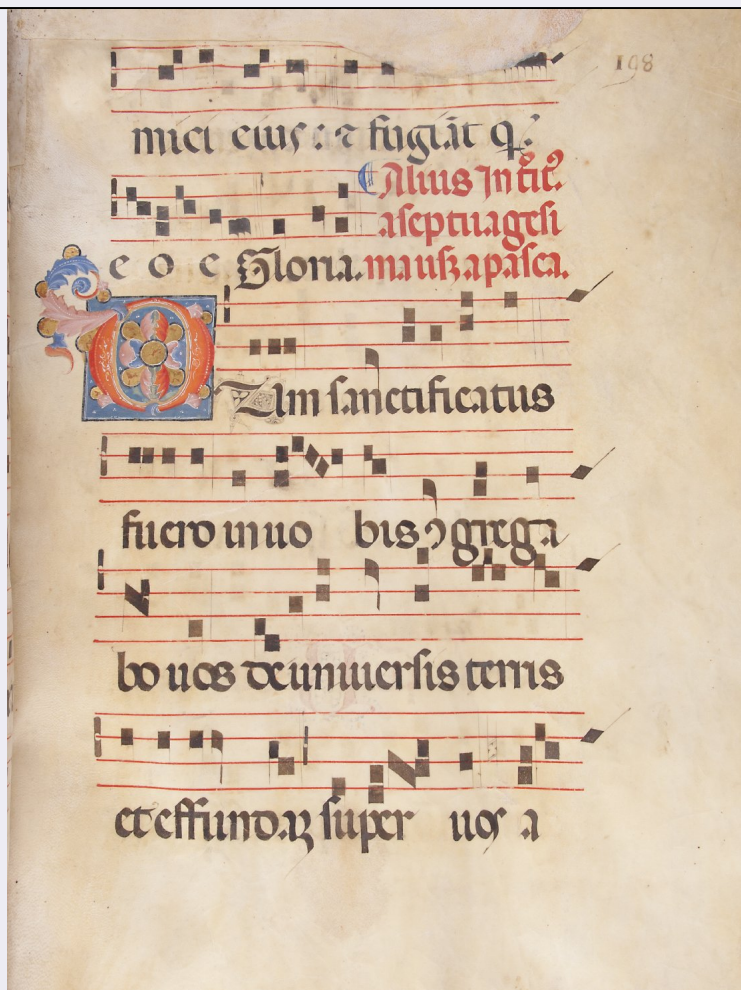 108
mici eius : et fugiāt q̄
Alius Introit᷒
a septuagesi
e o e Gloria. ma usqꝫ a pasca.
Dum sanctificatus
fuero in uo bis ꝯgrega
bo uos de uniuersis terris
et effundaꝫ super uos a